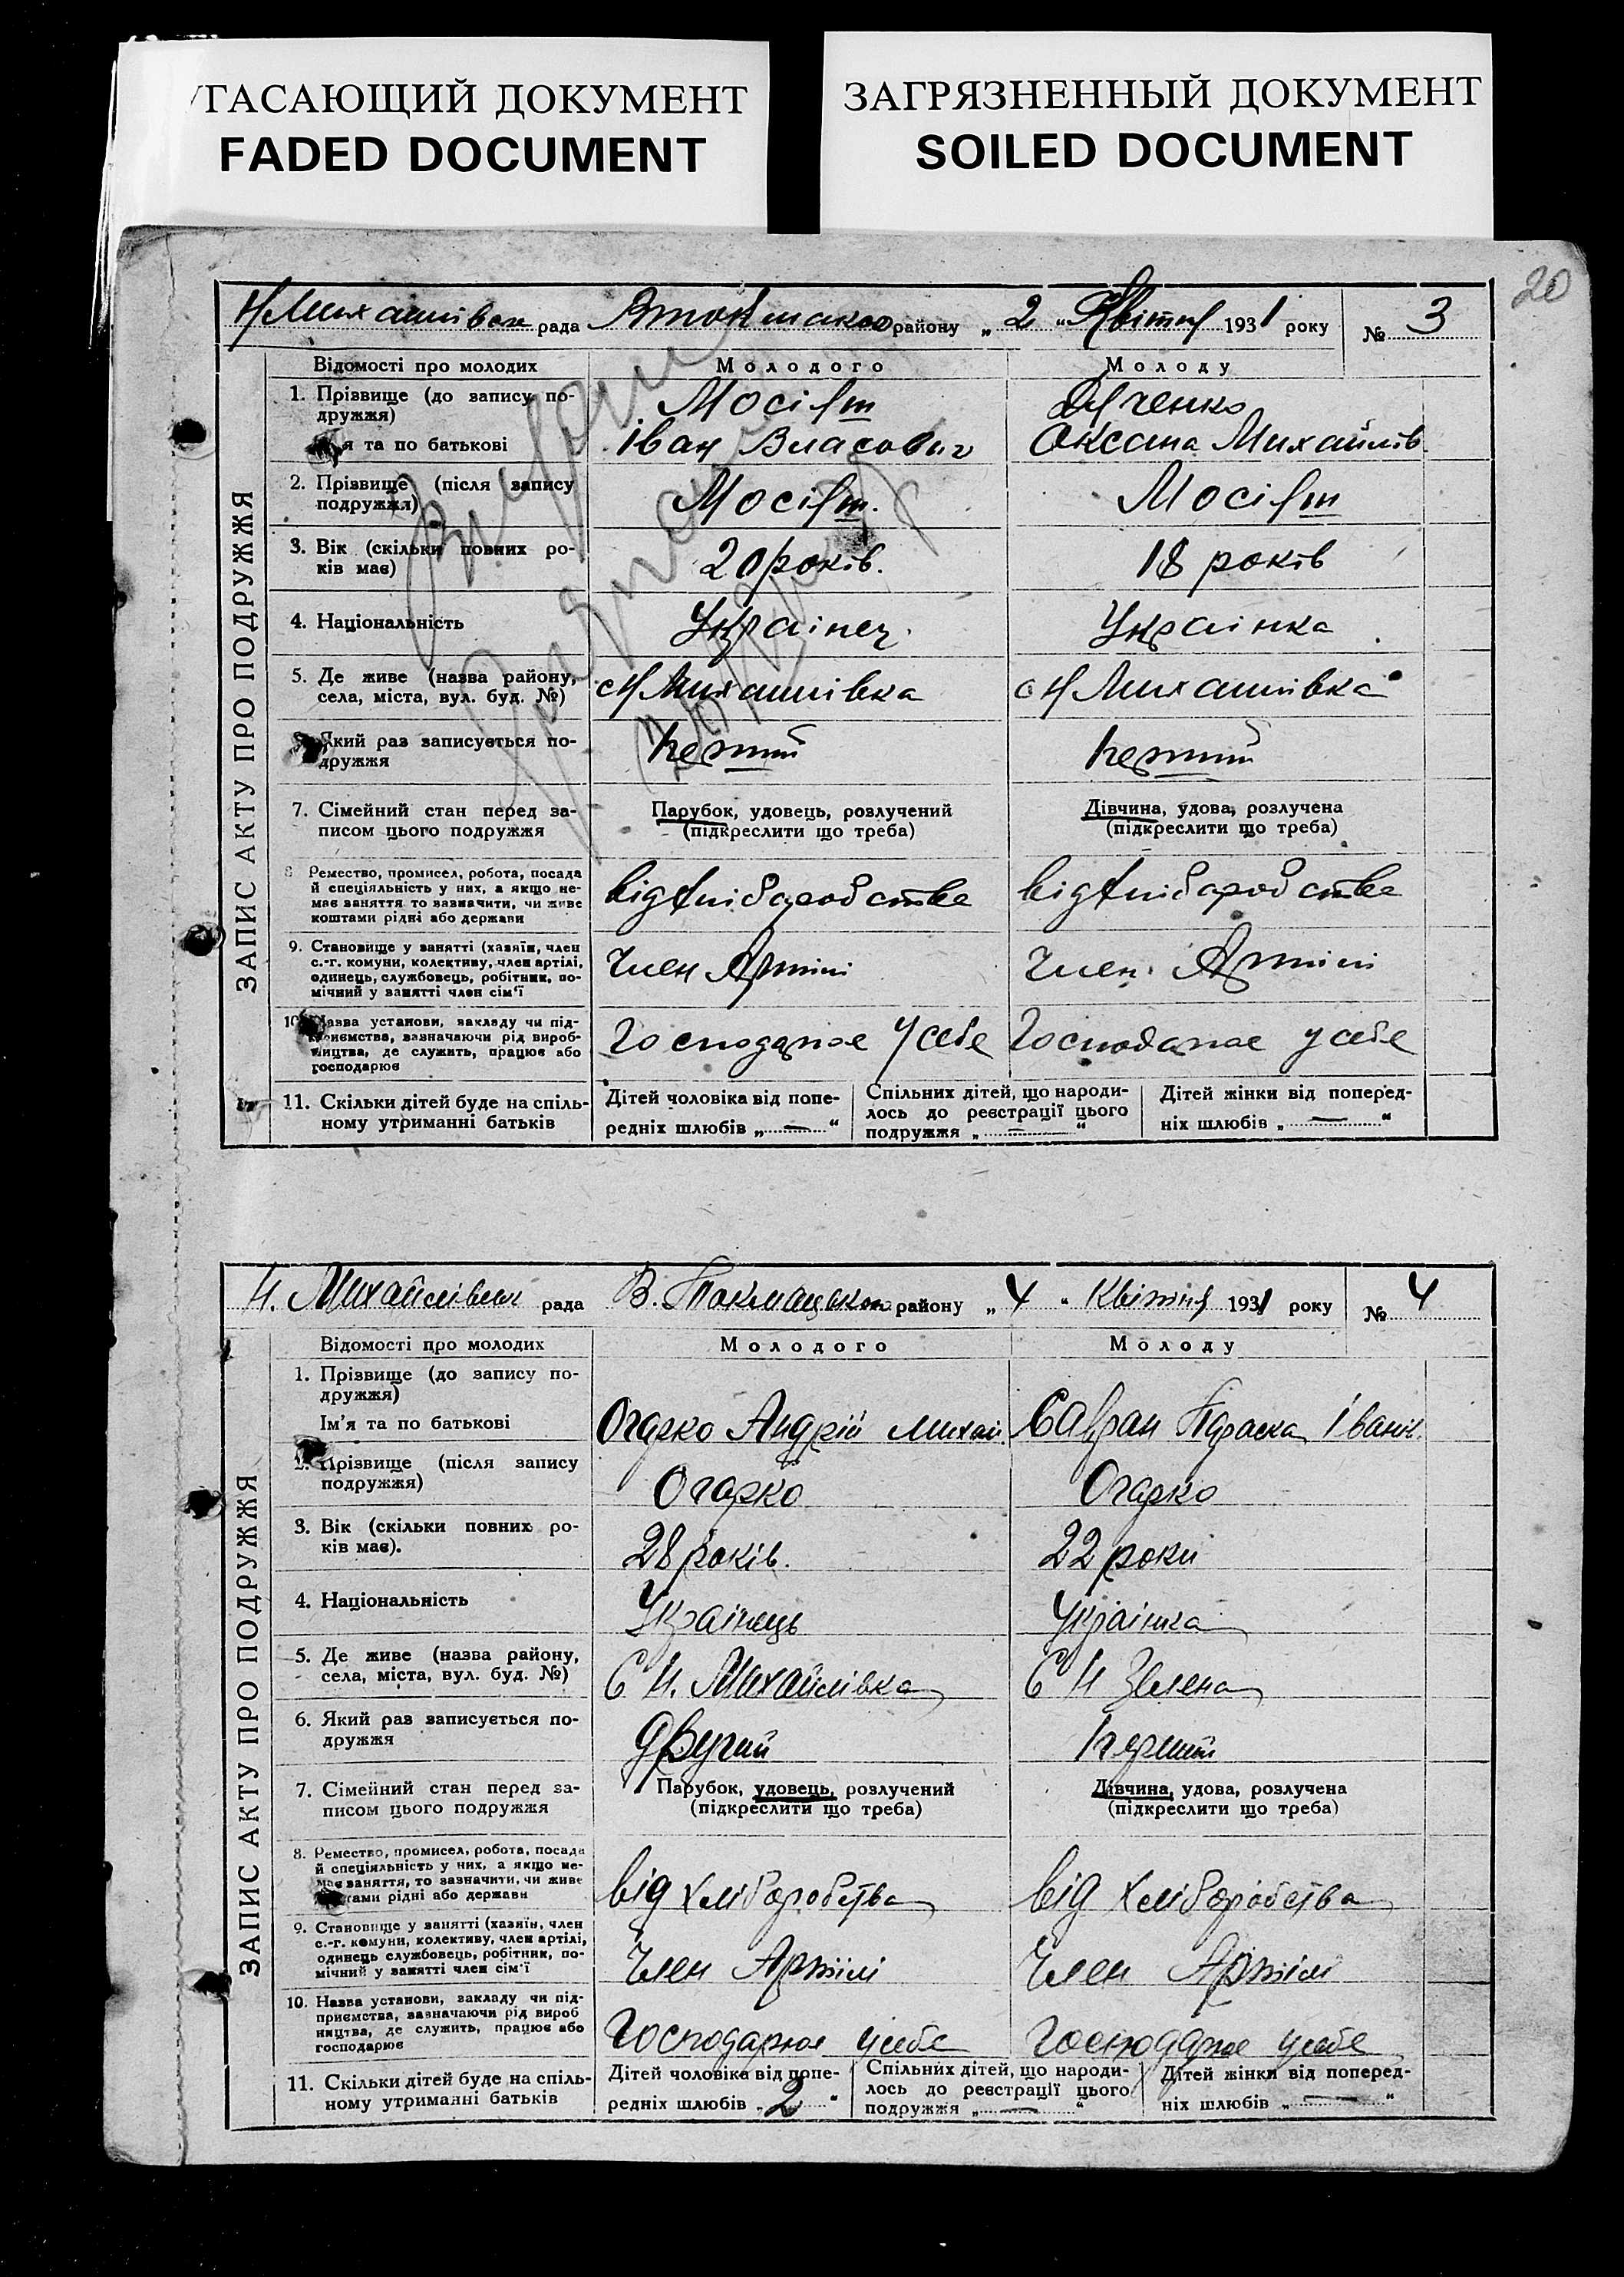 УГАСАЮЩИЙ ДОКУМЕНТ
FADED DOCUMENT
ЗАГРЯЗНЕННЫЙ ДОКУМЕНТ
SOILED DOCUMENT
20
рада району „ 2 " Квітня 1931 року № 3
ЗАПИС АКТУ ПРО ПОДРУЖЖЯ
Відомості про молодих Молодого Молоду
1. Прізвище (до запису по-
дружжя)
я та по батькові Іван Власович Оксана Михайлів.
2. Прізвище (після запису
подружжя)
3. Вік (скільки повних ро-
ків має) 20 років. 18 років
4. Національність Українец. Українка
5. Де живе (назва району,
села, міста, вул. буд. №) с Н Михайлівка с Н Михайлівка
Який раз записується по-
дружжя Перший Перший
7. Сімейний стан перед за-
писом цього подружжя
Парубок, удовець, розлучений
(підкреслити що треба)
Дівчина, удова, розлучена
(підкреслити що треба)
8 Ремество, промисел, робота, посада
й спеціяльність у них, а якщо не-
має заняття то зазначити, чи живе
коштами рідні або держави
від хліборобства від хліборобства
9. Становище у занятті (хазяїн, член
с.-г. комуни, колективу, член артілі,
одинець, службовець, робітник, по-
мічний у занятті член сім'ї
Член Артілі Член Артілі
10 Назва установи, закладу чи під-
приємства, зазначаючи рід вироб-
ництва, де служить, працює або
господарює
Господарює у себе Господарює у себе
11. Скільки дітей буде на спіль-
ному утриманні батьків
Дітей чоловіка від попе-
редніх шлюбів „ — "
Спільних дітей, що народи-
лось до реєстрації цього
подружжя „ — "
Дітей жінки від поперед-
ніх шлюбів „ — "
Н. Михайлівськ рада В. Токмацького району „ 4 " Квітня 1931 року № 4
ЗАПИС АКТУ ПРО ПОДРУЖЖЯ
Відомості про молодих Молодого Молоду
1. Прізвище (до запису по-
дружжя)
Ім'я та по батькові Огарко Андрій Михай. Савран Параска Іванів.
2. Прізвище (після запису
подружжя) Огарко Огарко
3. Вік (скільки повних ро-
ків має). 28 років. 22 роки
4. Національність Українець Українка
5. Де живе (назва району,
села, міста, вул. буд. №) С Н. Михайлівка С Н Зелена
6. Який раз записується по-
дружжя Другий Перший
7. Сімейний стан перед за-
писом цього подружжя
Парубок, удовець, розлучений
(підкреслити що треба)
Дівчина, удова, розлучена
(підкреслити що треба)
8. Ремество, промисел, робота, посада
й спеціяльність у них, а якщо не-
має заняття, то зазначити, чи живе
коштами рідні або держави
від хліборобства від хліборобства
9. Становище у занятті (хазяїн, член
с.-г. комуни, колективу, член артілі,
одинець службовець, робітник, по-
мічний у занятті член сім'ї
Член Артілі Член Артілі
10. Назва установи, закладу чи під-
приємства, зазначаючи рід вироб
ництва, де служить, працює або
господарює
Господарює у себе Господарює у себе
11. Скільки дітей буде на спіль-
ному утриманні батьків
Дітей чоловіка від попе-
редніх шлюбів „ 2 "
Спільних дітей, що народи-
лось до реєстрації цього
подружжя „ — "
Дітей жінки від поперед-
ніх шлюбів „ — "